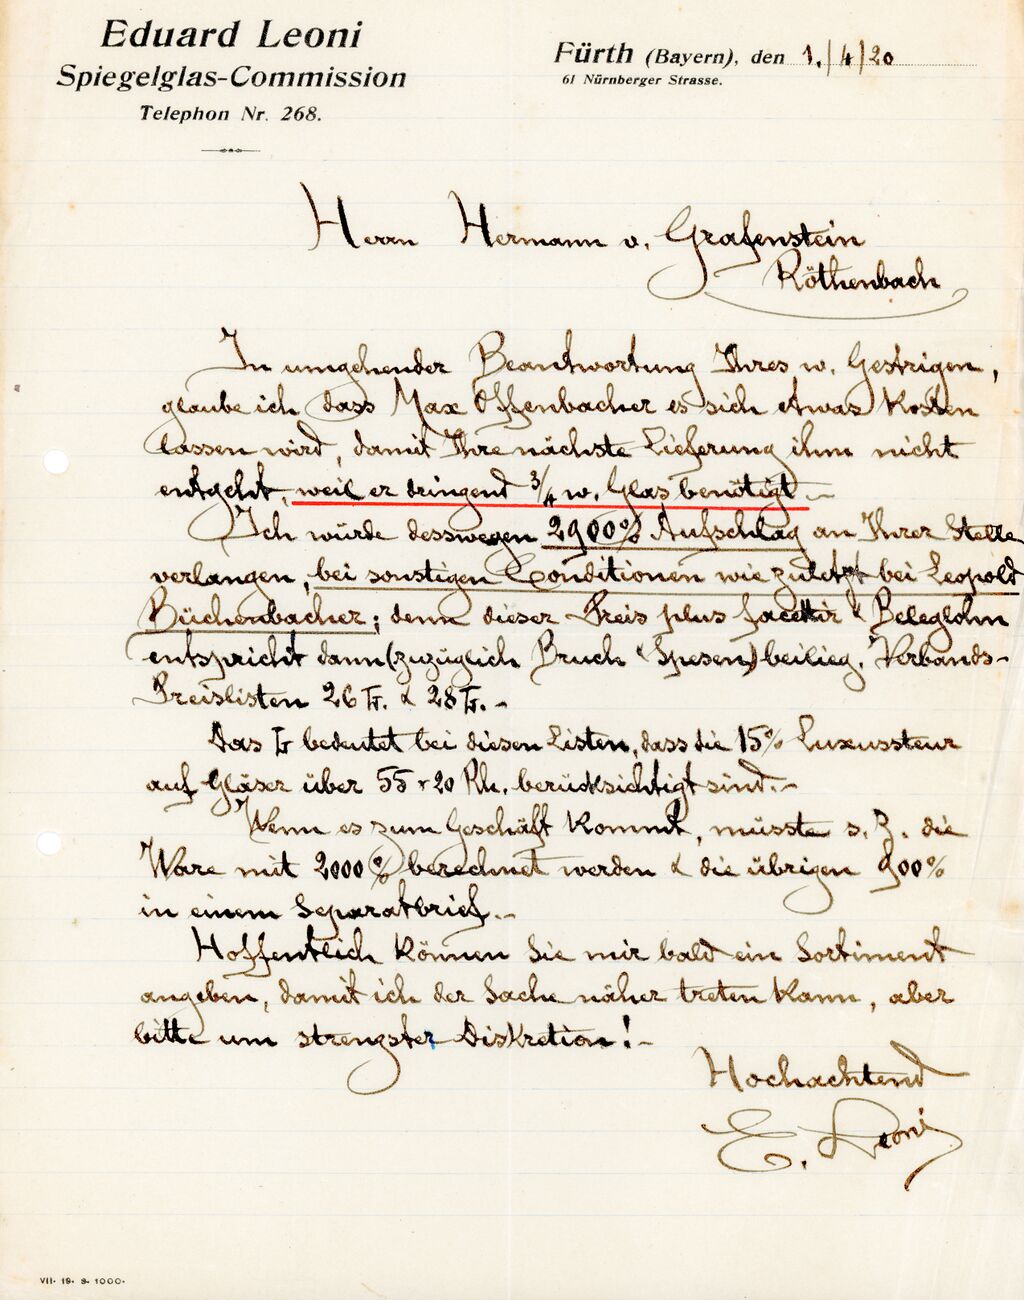 Eduard Leoni
Spiegelglas-Commission
Telephon Nr. 268.
Fürth (Bayern), den 1./4/20
61 Nürnberger Strasse.
Herrn Hermann v. Grafenstein
Röthenbach
In umgehender Beantwortung Ihres w. Gestrigen,
glaube ich dass Max Offenbacher es sich etwas kosten
lassen wird, damit Ihre nächste Lieferung ihm nicht
entgeht, weil er dringend 3/4 w. Glas benötigt.-
Ich würde desswegen 2900% Aufschlag an Ihrer Stelle
verlangen, bei sonstigen Conditionen wie zuletzt bei Leopold
Büchenbacher; denn dieser Preis plus facettir & Beleglohn
entspricht dann (zuzüglich Bruch & Spesen) beilieg. Verbands-
Preislisten 26 & 28
Das bedeutet bei diesen Listen, dass die 15% Luxussteur
auf Gläser über 55 20 Rh. berücksichtigt sind.-
Wenn es zum Geschäft kommt, müsste s. Z. die
Ware mit 2000% berechnet werden & die übrigen 900%
in einem Separatbrief.-
Hoffentlich können Sie mir bald ein Sortiment
angeben, damit ich der Sache näher treten kann, aber
bitte um strengster Diskretion!-
Hochachtend
E. Leoni
VII. 19. 9. 1000.